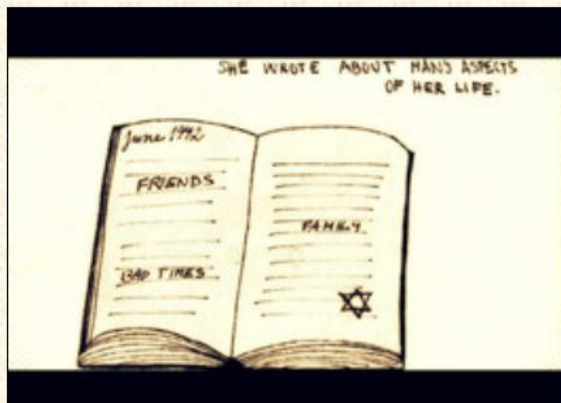 SHE WROTE ABOUT MANY ASPECTS
OF HER LIFE.
June 1942
FRIENDS
BAD TIMES
FAMILY